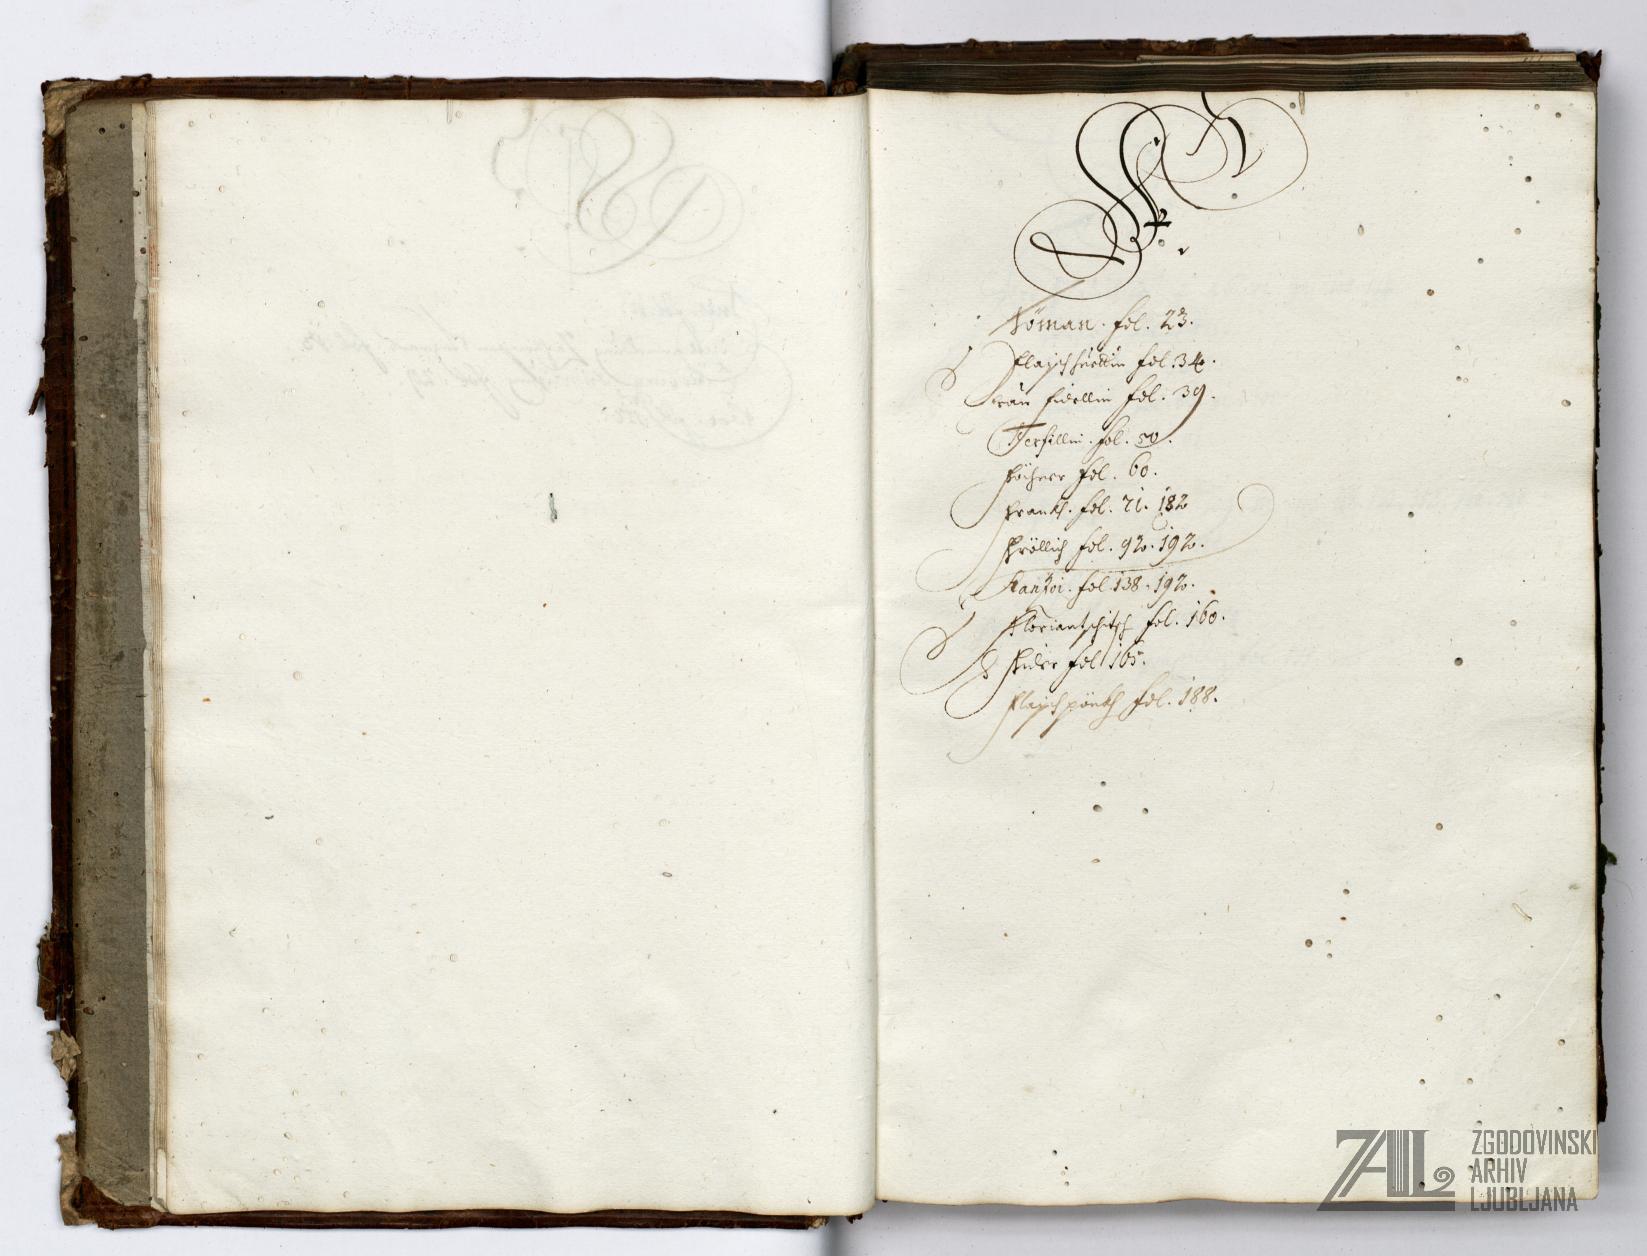 F
Föman. fol. 23.
Flayschhaellin fol. 34.
fidellin fol. 39.
fol. 50.
Föchner fol. 60.
Frankh. fol. 71. 182
Fröllich fol. 92. 192.
Franzoi. fol. 138. 192.
Floriantschitsch fol. 160.
Fider fol 165.
Flayschpönkh fol. 188.
ZAL ZGODOVINSKI
ARHIV
LJUBLJANA